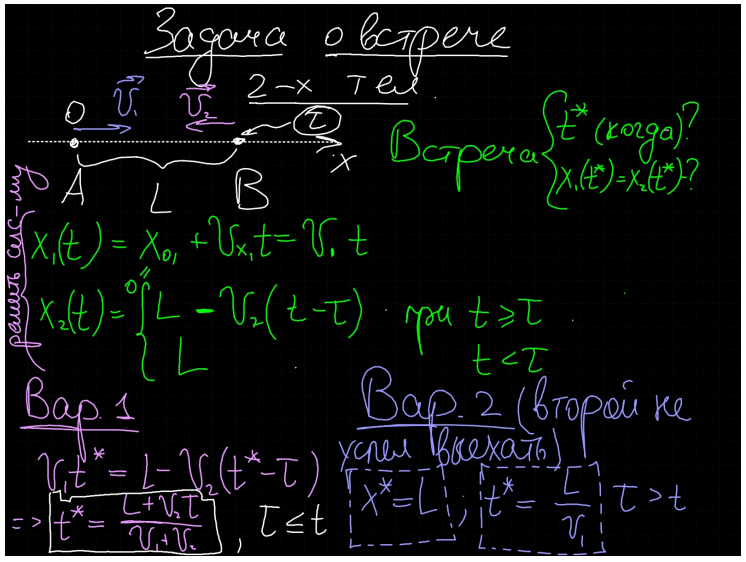 Задача о встрече
2-х тел
O v⃗₁ v⃗₂ τ
x
A L B
Встреча { t* (когда)?
x₁(t*) = x₂(t*) - ?
решить сис-му
x₁(t) = x₀₁ + v_x₁ t = v₁ t
0
x₂(t) = { L - v₂(t - τ) при t ⩾ τ
L t < τ
Вар. 1
v₁t* = L - v₂(t* - τ)
=> t* = (L + v₂τ)/(v₁ + v₂), τ ≤ t
Вар. 2 (второй не
успел выехать)
x* = L ; t* = L/v₁ τ > t